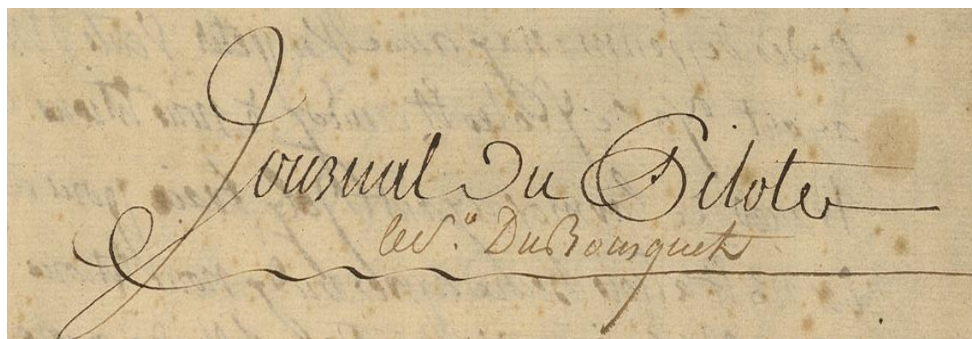 Journal Du Pilote
le S.r DuBousquet